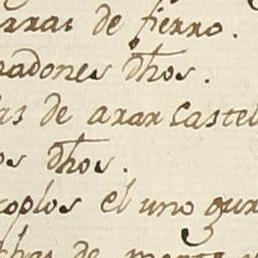 rras de fierro.
adones dhos.
as de arar Castel
os dhos.
coplos el uno gur
chas de